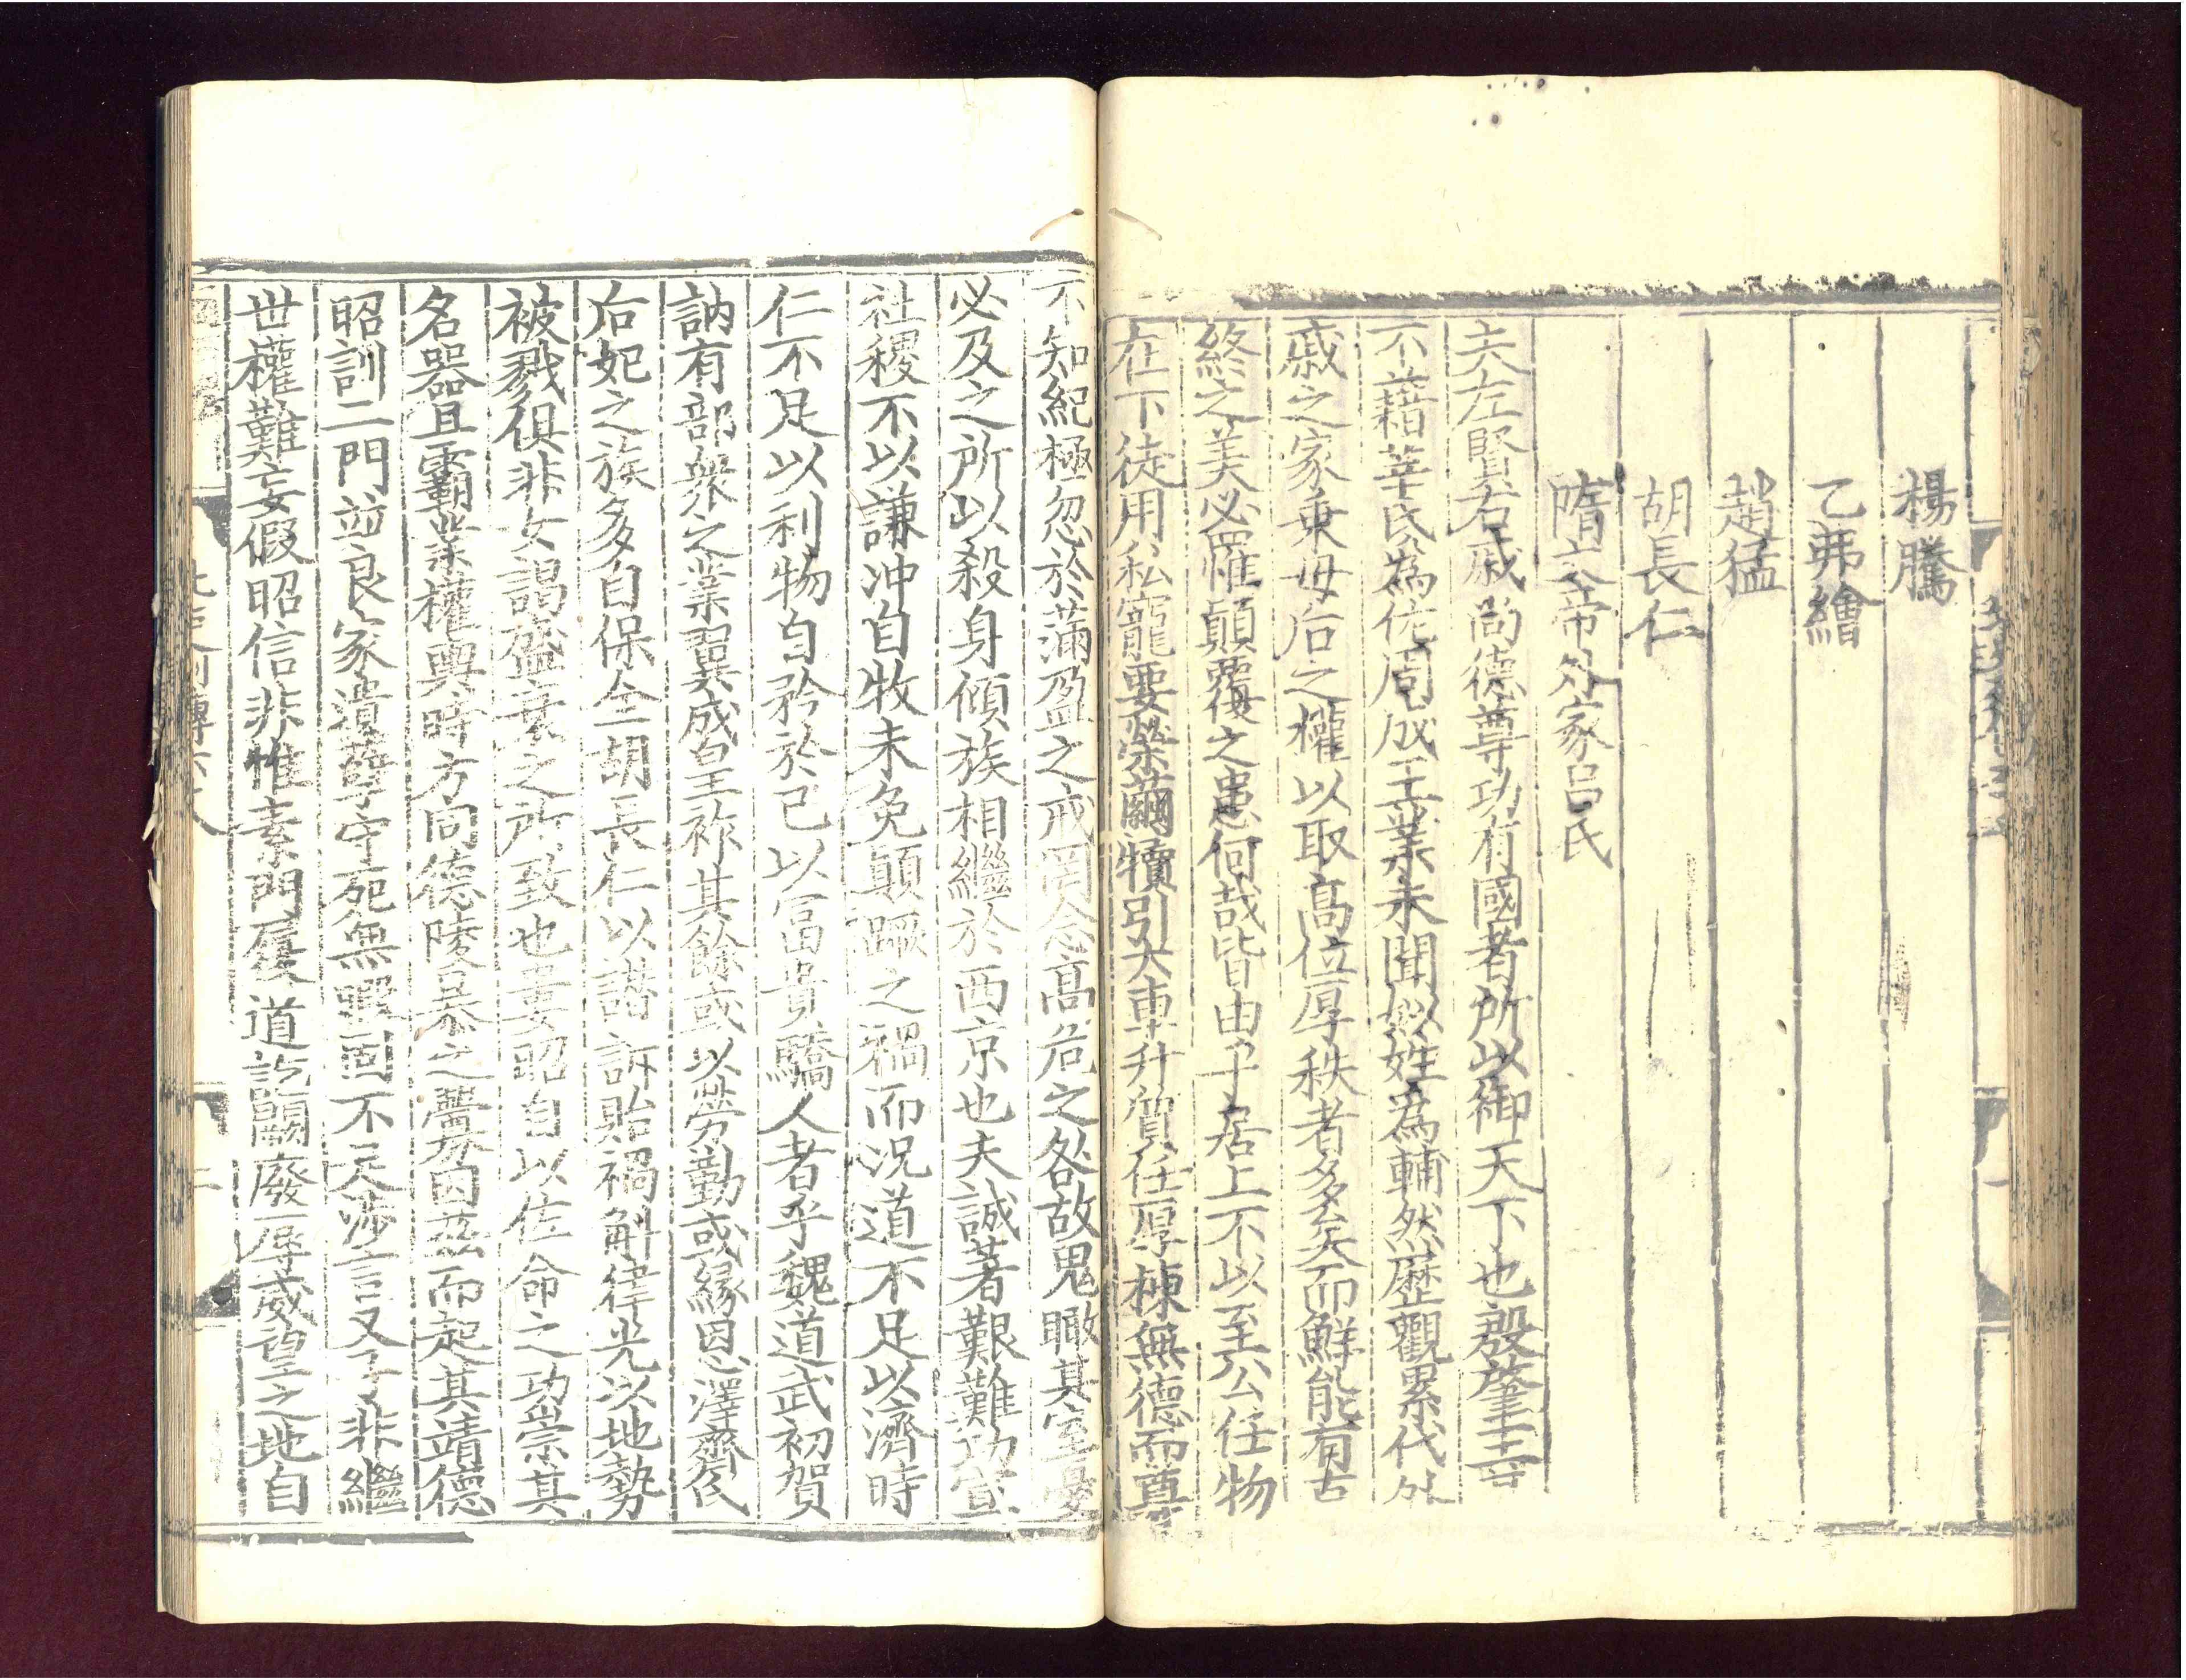 楊騰
乙弗繪
趙猛
胡長仁
隋文帝外家呂氏
夫左賢右戚尚德尊功有國者所以御天下也殷肇王
不藉莘氏為佐周成王業未聞姒姓為輔然歷觀累代外
戚之家乗母后之權以取髙位厚秩者多矣而鮮能有古
終之美必罹顛覆之患何哉皆由乎居上不以至公任物
在下徒用私寵要榮繭犢引大車升質任厚棟無德而尊
不知紀極忽於滿盈之戒罔念髙危之咎故鬼瞰其室憂
必及之所以殺身傾族相繼於西京也夫誠著艱難功宣
社稷不以謙冲自牧未免顛蹶之禍而況道不足以濟時
仁不足以利物自矜於己以富貴驕人者乎魏道武初賀
訥有部衆之業翼成皇祚其餘或以勞勤或緣因恩澤齊氏
后妃之族多自保全胡長仁以譖訴貽禍斛律光以地勢
被戮俱非女謁盛衰之所致也婁昭自以佐命之功崇其
名器且霸業權輿時方同德陵暴之釁因茲而起其靖德
昭訓二門竝良家遺孽守死無暇固不足涉言又子非繼
世權難妄假昭信非惟素門履道訖鬬廢辱威望之地自
北史列傳六八
二